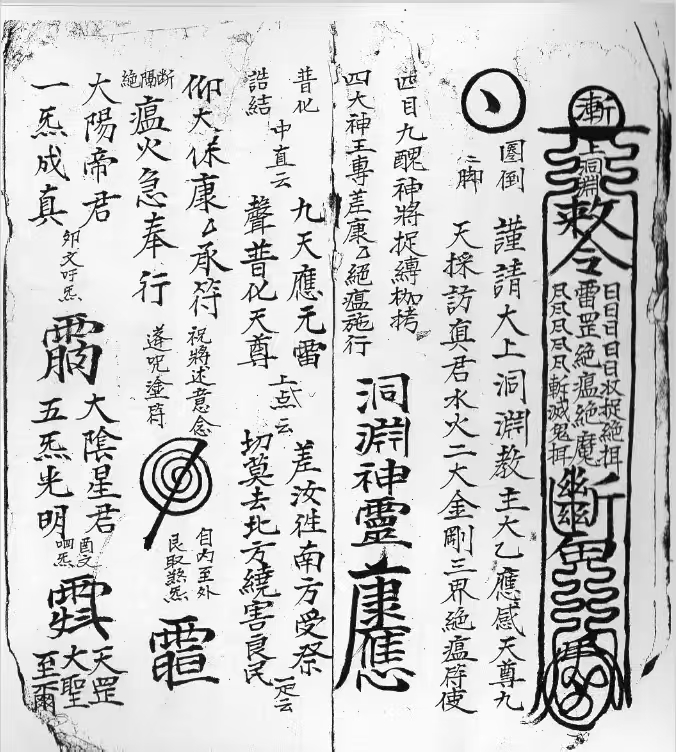 上洞淵
敕令
日日日日日收捉絕
雷罡絕瘟絕魔
月月月月月斬滅鬼
圈倒
二脚
謹請大上洞淵教主大乙應感天尊九
天採訪真君水火二大金剛三界絕瘟符使
四目九醜神將捉縛枷拷
四大神王專差康乙絕瘟施行
洞淵神靈康應
普化
誥結
中直云
九天應元雷
聲普化天尊
上点云
差汝徃南方受祭
切莫去北方繞害良民
一定云
仰大保康乙承符
斷隔絕瘟火急奉行
祝將述意念
蓬呪塗符
自内至外
艮取煞炁
大陽帝君
一炁成真
卯文吁炁
大陰星君
五炁光明
酉文
呬炁
天罡
大聖
至爾